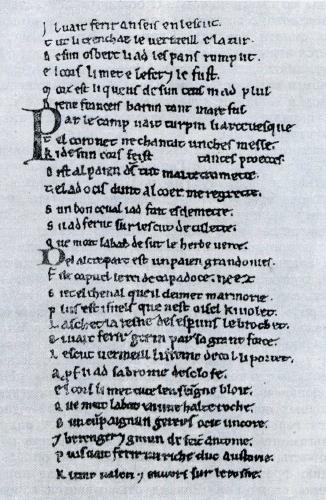 Il vait ferir anseis en lescut.
Tut li trenchat le vermeill e lazur.
De sun osberc li ad les pans rumput
El cors li met e le fer ⁊ le fust.
Morz est li quens de sun tens ni ad plus
Dient franceis barun tant mare fus
Par le camp vait turpin li arcevesque
Tel coronet ne chantat unches messe.
Ki de sun cors feist tantes proecces.
Dist al paien ds tut mal te tramette.
Tel ad ocis dunt al coer me regrette.
Sun bon ceval i ad fait esdemetre.
Si lad ferut sur lescut de tulette.
Que mort labat desur le herbe verte.
Del altre part est un paien grandonies.
Filz capuel le rei de capadoce.
Siet el cheval que il cleimet marmorie.
Plus est isnels que nest oisel ki volet.
Laschet la resne des espuns le brochet.
Si vait ferir gerin par sa grant force.
Lescut vermeill li freint de col li portet.
Aprof li ad sa bronie desclose.
El cors li met tute lenseigne bloie.
Que mort labat en une halte roche.
Sun cumpaignun gerers ocit uncore.
⁊ berenger ⁊ guiun de seint antonie.
Puis vait ferir un riche duc austorie.
Ki tint valeri ⁊ envers sur le rosne.